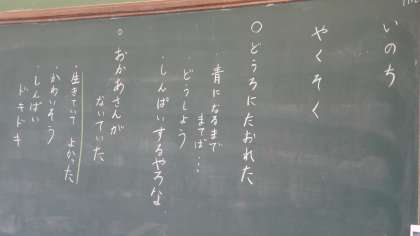 いのち
やくそく
○どうろにたおれた
・青になるまで
まてば…
・どうしよう
・しんぱいするやろな
○おかあさんが
ないていた
・生きていてよかった
・かわいそう
・しんぱい
ドキドキ